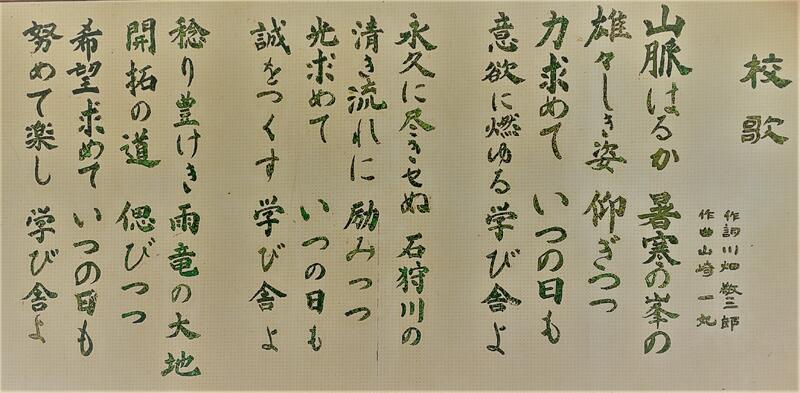 校歌
作詞川畑敬三郎
作曲山崎一丸
山脈はるか 暑寒の峯の
雄々しき姿 仰ぎつつ
力求めて いつの日も
意欲に燃ゆる 学び舎よ
永久に尽きせぬ 石狩川の
清き流れに 励みつつ
光求めて いつの日も
誠をつくす 学び舎よ
稔り豊けき 雨竜の大地
開拓の道 偲びつつ
希望求めて いつの日も
努めて楽し 学び舎よ